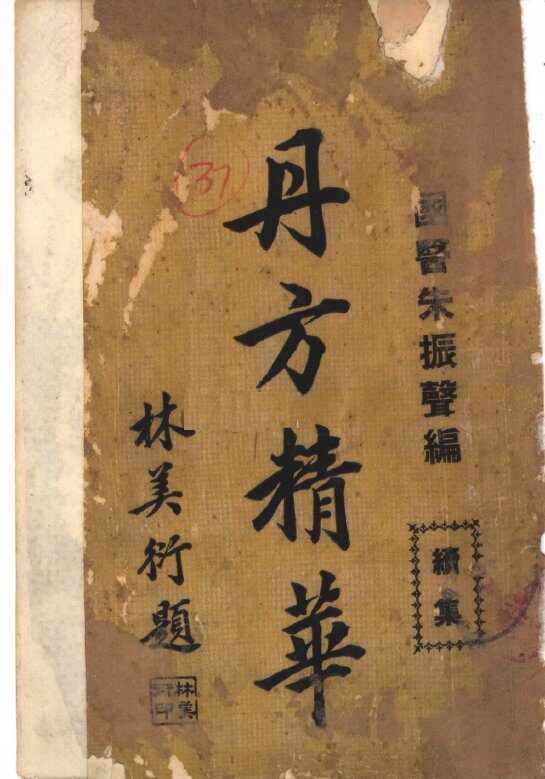 國醫朱振聲編
續集
丹方精華
林美衍題
林美
衍印
37